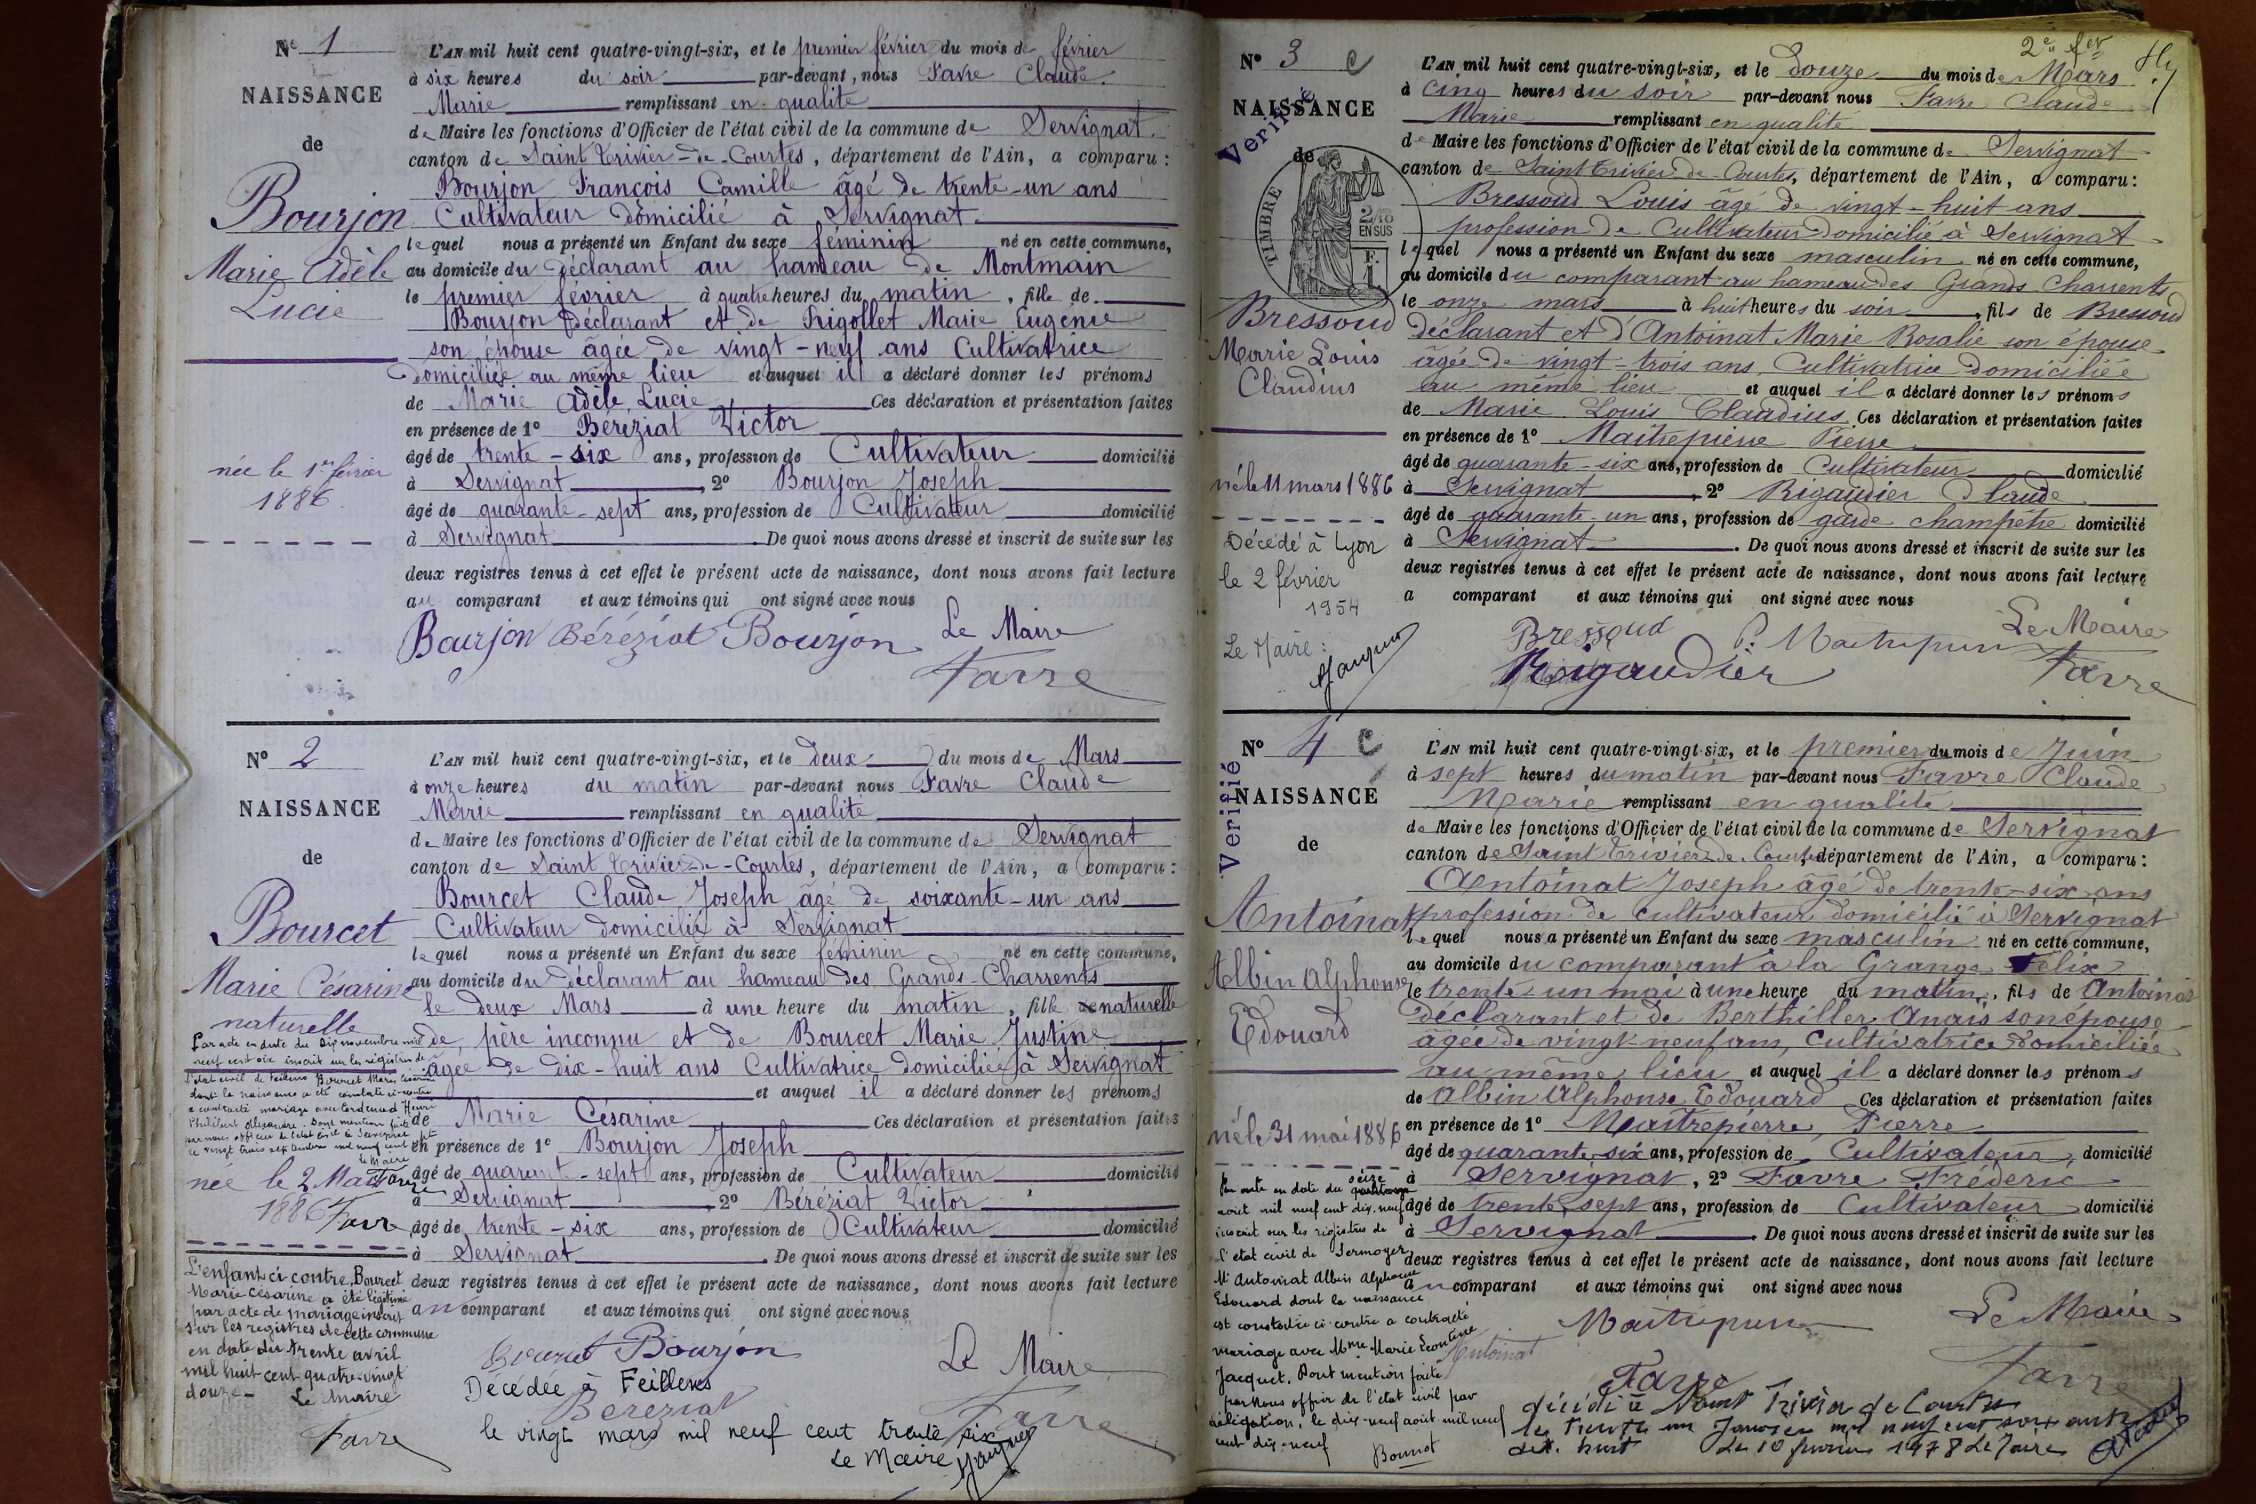 N° 1
NAISSANCE
de
Bourjon
Marie Adèle
Lucie
née le 1er février
1886
L'AN mil huit cent quatre-vingt-six, et le premier février du mois de février
à six heures du soir par-devant, nous Favre Claude
Marie remplissant en qualité
de Maire les fonctions d'Officier de l'état civil de la commune de Servignat
canton de Saint Trivier-de-Courtes, département de l'Ain, a comparu :
Bourjon François Camille âgé de trente-un ans
Cultivateur domicilié à Servignat
lequel nous a présenté un Enfant du sexe féminin né en cette commune,
au domicile du déclarant au hameau de Montmain
le premier février à quatre heures du matin, fille de
Bourjon déclarant et de Frigollet Marie Eugénie
son épouse âgée de vingt-neuf ans Cultivatrice
domiciliée au même lieu et auquel il a déclaré donner les prénoms
de Marie Adèle Lucie Ces déclaration et présentation faites
en présence de 1° Béréziat Victor
âgé de trente-six ans, profession de Cultivateur domicilié
à Servignat, 2° Bourjon Joseph
âgé de quarante-sept ans, profession de Cultivateur domicilié
à Servignat. De quoi nous avons dressé et inscrit de suite sur les
deux registres tenus à cet effet le présent acte de naissance, dont nous avons fait lecture
au comparant et aux témoins qui ont signé avec nous
Bourjon Béréziat Bourjon Le Maire
Favre
N° 2
NAISSANCE
de
Bourcet
Marie Césarine
naturelle
Par acte en date du dix novembre mil
neuf cent six inscrit sur les registres de
l'état civil de Feillens Bourcet Marie Césarine
dont la naissance a été constatée ci-contre
a contracté mariage avec Henri
Philibert Alexandre. Dont mention faite
par nous officier de l'état civil à Servignat
ce vingt trois mil neuf cent
Le Maire
Favre
née le 2 Mars
1886 Favre
L'enfant ci contre, Bourcet
Marie Césarine a été légitimé
par acte de mariage inscrit
sur les registres de cette commune
en date du trente avril
mil huit cent quatre-vingt
douze - Le Maire
Favre
L'AN mil huit cent quatre-vingt-six, et le deux du mois de Mars
à onze heures du matin par-devant nous Favre Claude
Marie remplissant en qualité
de Maire les fonctions d'Officier de l'état civil de la commune de Servignat
canton de Saint Trivier-de-Courtes, département de l'Ain, a comparu :
Bourcet Claude Joseph âgé de soixante-un ans
Cultivateur domicilié à Servignat
lequel nous a présenté un Enfant du sexe féminin né en cette commune,
au domicile du déclarant au hameau des Grands-Charrents
le deux Mars à une heure du matin, fille de naturelle
de père inconnu et de Bourcet Marie Justine
âgée de dix-huit ans Cultivatrice domiciliée à Servignat
et auquel il a déclaré donner les prénoms
de Marie Césarine Ces déclaration et présentation faites
en présence de 1° Bourjon Joseph
âgé de quarant-sept ans, profession de Cultivateur domicilié
à Servignat, 2° Béréziat Victor
âgé de trente-six ans, profession de Cultivateur domicilié
à Servignat. De quoi nous avons dressé et inscrit de suite sur les
deux registres tenus à cet effet le présent acte de naissance, dont nous avons fait lecture
au comparant et aux témoins qui ont signé avec nous
Bourcet Bourjon Le Maire
Décédée à Feillens
Béréziat Favre
le vingt mars mil neuf cent trente six
Le Maire
2e fer
N° 3 C
NAISSANCE
Verifié
de
TIMBRE
2/10
EN SUS
F.
1
Bressoud
Marie Louis
Claudius
né le 11 mars 1886
Décédé à Lyon
le 2 février
1954
Le Maire :
L'AN mil huit cent quatre-vingt-six, et le douze du mois de Mars
à cinq heures du soir par-devant nous Favre Claude
Marie remplissant en qualité
de Maire les fonctions d'Officier de l'état civil de la commune de Servignat
canton de Saint Trivier-de-Courtes, département de l'Ain, a comparu :
Bressoud Louis âgé de vingt-huit ans
profession de Cultivateur domicilié à Servignat
lequel nous a présenté un Enfant du sexe masculin né en cette commune,
au domicile du comparant au hameau des Grands Charrents
le onze mars à huit heures du soir, fils de Bressoud
déclarant et d'Antoinat Marie Rosalie son épouse
âgée de vingt-trois ans, Cultivatrice domiciliée
au même lieu et auquel il a déclaré donner les prénoms
de Marie Louis Claudius Ces déclaration et présentation faites
en présence de 1° Maitrepierre Pierre
âgé de quarante-six ans, profession de Cultivateur domicilié
à Servignat, 2° Rigaudier Claude
âgé de quarante un ans, profession de garde champêtre domicilié
à Servignat. De quoi nous avons dressé et inscrit de suite sur les
deux registres tenus à cet effet le présent acte de naissance, dont nous avons fait lecture
a comparant et aux témoins qui ont signé avec nous
Bressoud P. Maitrepierre Le Maire
Rigaudier Favre
N° 4 C
Verifié
NAISSANCE
de
Antoinat
Albin Alphonse
Edouard
né le 31 mai 1886
Par acte en date du seize
août mil neuf cent dix-neuf
inscrit sur les registres de
l'état civil de Sermoyer
Mr Antoinat Albin Alphonse
Edouard dont la naissance
est constatée ci-contre a contracté
mariage avec Mme Marie Léontine
Jacquet. Dont mention faite
par nous officier de l'état civil par
délégation, le dix-neuf août mil neuf
cent dix-neuf
Bonnot
L'AN mil huit cent quatre-vingt-six, et le premier du mois de Juin
à sept heures du matin par-devant nous Favre Claude
Marie remplissant en qualité
de Maire les fonctions d'Officier de l'état civil de la commune de Servignat
canton de Saint Trivier de Courtes, département de l'Ain, a comparu :
Antoinat Joseph âgé de trente-six ans
profession de cultivateur domicilié à Servignat
lequel nous a présenté un Enfant du sexe masculin né en cette commune,
au domicile du comparant à la Grange Félix
le trente-un mai à une heure du matin, fils de Antoinat
déclarant et de Berthiller Anaïs son épouse
âgée de vingt-neuf ans, Cultivatrice domiciliée
au même lieu et auquel il a déclaré donner les prénoms
de Albin Alphonse Edouard Ces déclaration et présentation faites
en présence de 1° Maitrepierre Pierre
âgé de quarante-six ans, profession de Cultivateur domicilié
à Servignat, 2° Favre Fréderic
âgé de trente sept ans, profession de Cultivateur domicilié
à Servignat. De quoi nous avons dressé et inscrit de suite sur les
deux registres tenus à cet effet le présent acte de naissance, dont nous avons fait lecture
au comparant et aux témoins qui ont signé avec nous
Maitrepierre Le Maire
Antoinat
Favre Favre
décédé à Saint Trivier de Courtes
le trente un Janvier mil neuf cent soixante
dix huit Le 10 février 1978 Le Maire